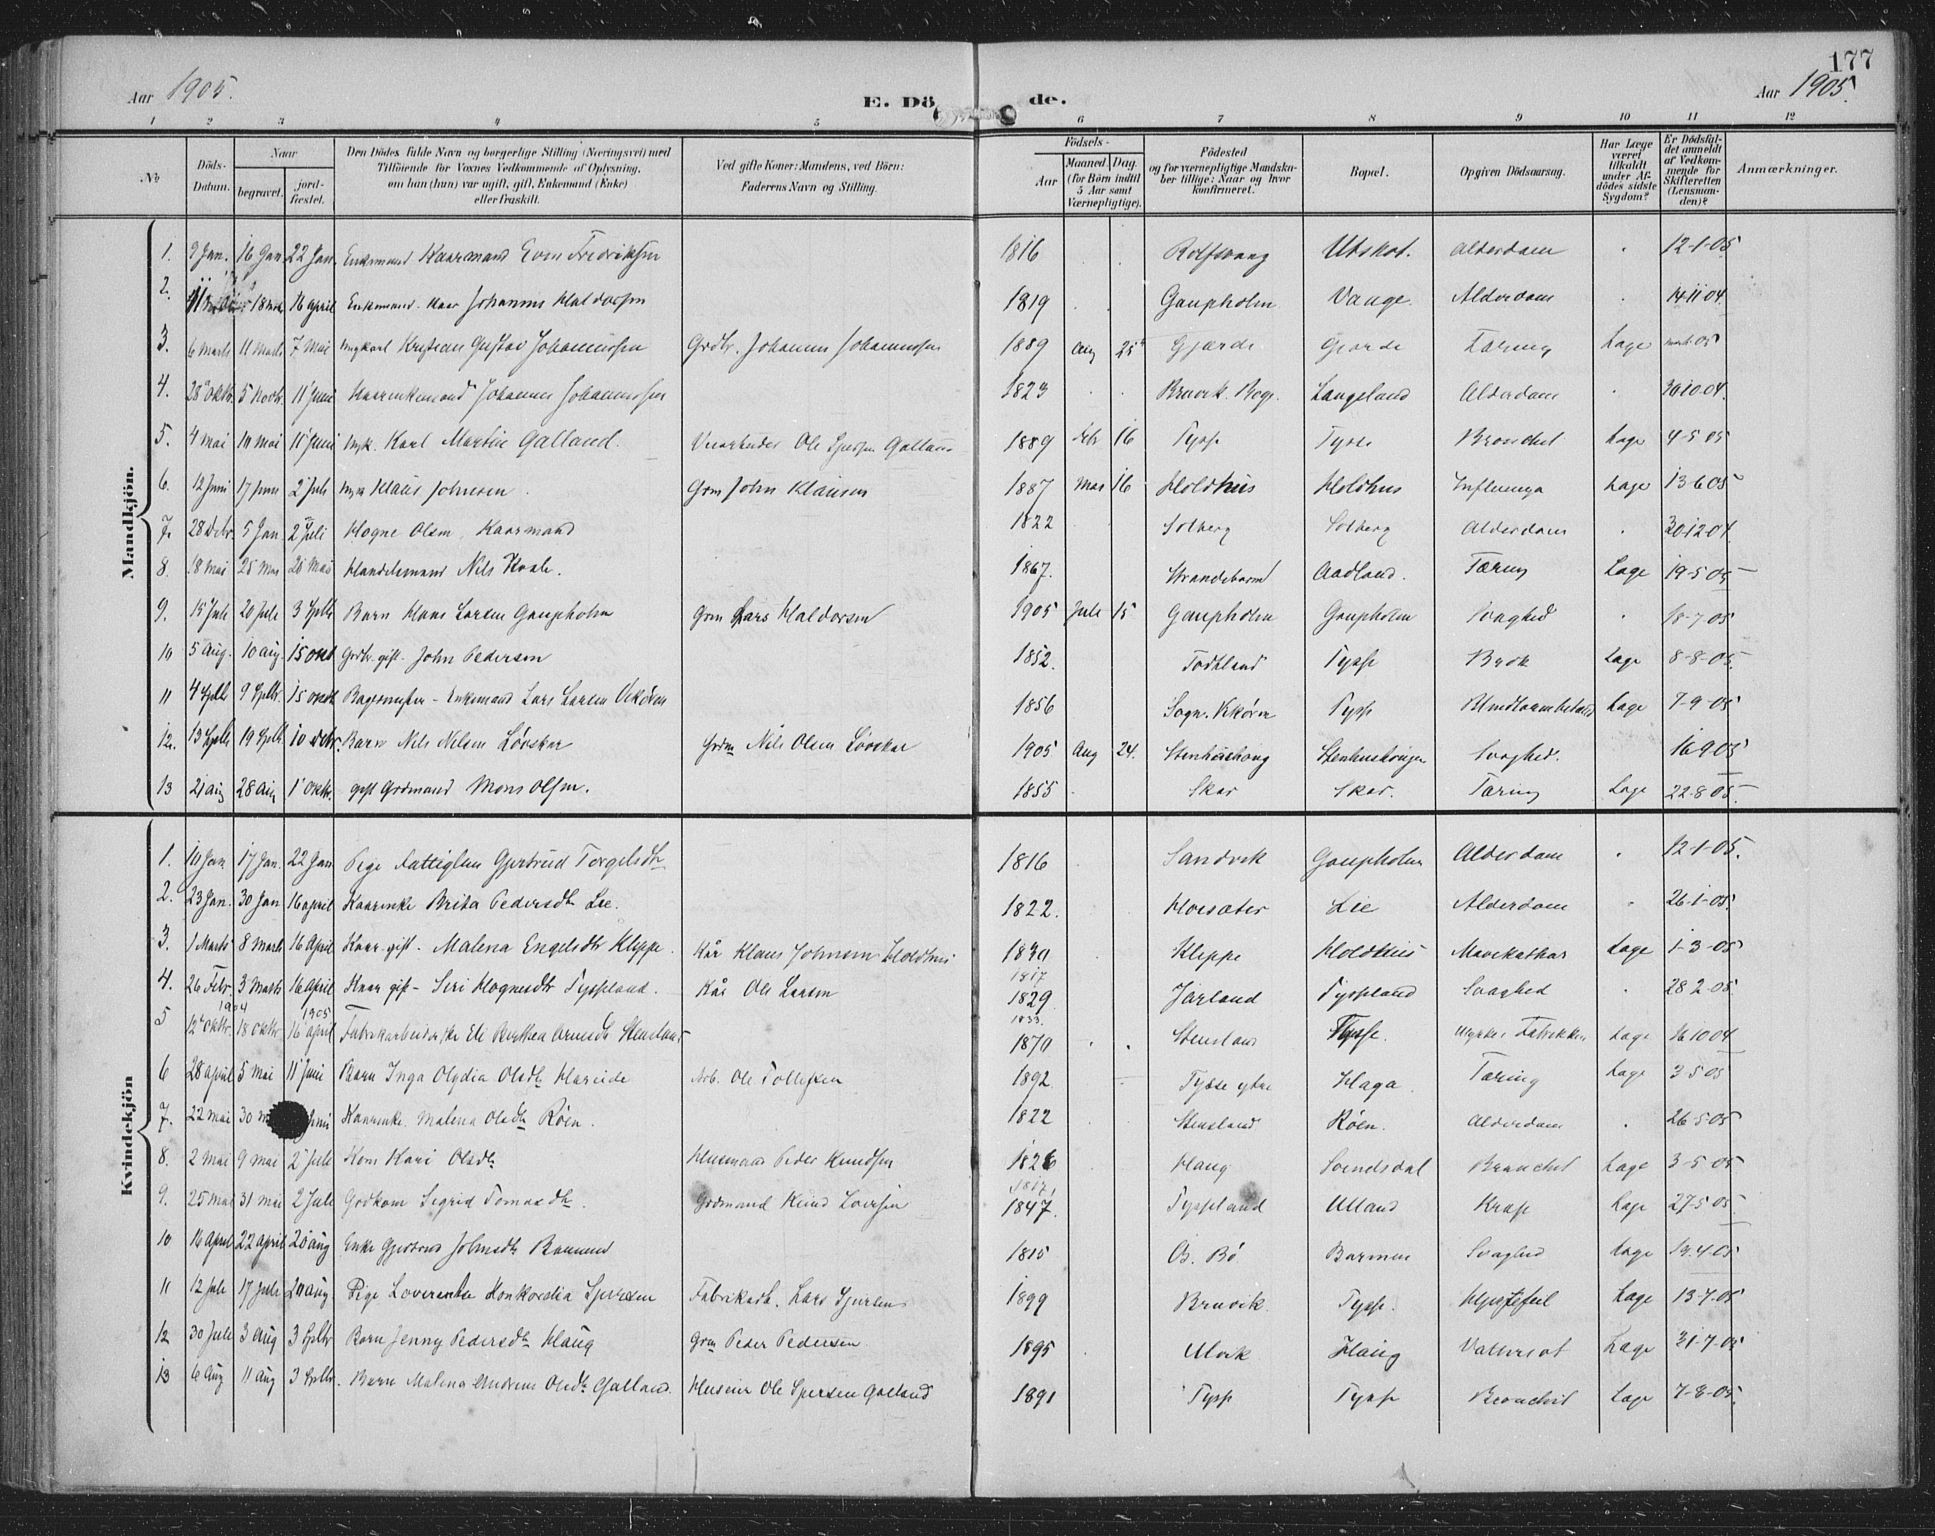 177
Aar 1905. E. Dö de. Aar 1905.
1 2 3 4 5 6 7 8 9 10 11 12
No Döds-Datum. Naar begravet. jord-fæstet. Den Dödes fulde Navn og borgerlige Stilling (Næringsvei) med Tilföiende for Voxnes Vedkommende af Oplysning, om han (hun) var ugift, gift, Enkemand (Enke) eller fraskilt. Ved gifte Koner: Mandens, ved Börn: Faderens Navn og Stilling. Födsels- Aar Maaned Dag. (for Börn indtil 5 Aar samt Værnepligtige). Födested og for værnepligtige Mandskaber tillige: Naar og hvor konfirmeret. Bopæl. Opgiven Dödsaarsag. Har Læge været tilkaldt under Afdödes sidste Sygdom? Er Dödsfaldet anmeldt af Vedkommende for Skifteretten (Lensmanden)? Anmærkninger.
Mandkjön.
1. 9 Jan. 16 Jan 22 Jan Enkemand Kaarmand Even Fredriksen 1816 Rolfsvaag Utskot. Alderdom 12-1-05
2. 18 16 april Enkemand. Kaar Johannes Haldorsen 1819 Gaupholm Vange. Alderdom 14 11 04.
3. 6 Marts 11 Marts 7 Mai Ungkarl Kristian Gustav Johannessen Grdbr. Johannes Johannessen 1889 Aug 25 Gjærde Gjerde Tæring Læge 05
4. 28 Oktbr. 5 Novbr. 11 Juni Kaarenkemand Johannes Johannessen 1823 Bruvik. Langeland Alderdom 30 10 04.
5. 4 Mai 10 Mai 11 Juni Ungk. Karl Martin Galland. Ole Sjursen Galland 1889 Febr 16 Tysse Tysse Bronchit Læge 4-5 05
6. 12 Juni 17 Juni 2 Juli Ungk Klaus Johnsen. Grm John Klausen 1887 Mar 16 Holdhus Holdhus Influenza Læge 13-6 05
7. 28 Dcbr. 5 Jan 2 Juli Hogne Olsen, Kaarmand 1822 Solberg Solberg Alderdom 30-12 04
8. 18 Mai 25 Mai 25 Mai Handelsmand Nils Kvale. 1867. Strandebarm Aadland. Tæring Læge 19-5 05
9. 15 Juli 20 Juli 3 Septbr Barn Hans Larsen Gaupholm Grm Lars Haldorsen 1905 Juli 15 Gaupholm Gaupholm Svaghed 18-7-05
10 5 Aug. 10 Aug. 15 Okt Grdbr. gift. John Pedersen 1852. Todtland Tysse Brok Læge 8-8-05
11 4 Septb 9 Septbr 15 Oktb Bagermester - Enkemand Lars Larsen 1856 Sogn. Tysse Læge 7-9-05
12. 13 Septb 19 Septb 10 Dcbr. Barn Nils Nilsen Løvskar Grdm Nils Olsen Løvskar 1905 Aug 24. Svaghed. 16 9 05
13 21 Aug 28 Aug 1 Oktbr. gift Grdmand Mons Olsen. 1855 Skar Skar. Tæring Læge 22-8 05
Kvindekjön
1. 10 Jan 17 Jan. 22 Jan Pige Fattiglem Gjertrud Torgelsdtr 1816 Sandvik Gaupholm Alderdom 12-1-05.
2. 23 Jan. 30 Jan 16 april Kaarenke Brita Pedersdtr Lie. 1822. Hoesæter Lie Alderdom 26-1-05.
3. 1 Marts 8 Marts 16 April Kaar gift. Malena Engelsdtr Kleppe. Kår Klaus Johnsen Holdhus 1830 1817 Kleppe Holdhus Mavekathar Læge 1-3-05
4. 26 Febr 3 Marts 16 April Kaar gift - Siri Hognesdtr Tyssland. Kår Ole Larsen 1829 1833 Jarland Tyssland Svaghed 28 2-05
5 1904 12 Oktbr 18 Oktbr 1905 16 april Fabrikarbeiderske 1870 Stensland Tysse. Fabrikken Læge 16 10 04
6 28 april 5 Mai 11 Juni Barn Inga Olydia Olsdtr Hareide Arb. Ole Tollefsen 1892. Tysse ytre Haga. Tæring Læge 3-5 05
7. 22 Mai 30 Juni Kaarenke. Malena Olsdtr Røen. 1822 Stensland Røen. Alderdom 26-5 05
8. 2 Mai 9 Mai 2 Juli Kone Kari Olsdtr Husmand Peder Knudsen 1826 1817 Haug Svendsdal Bronchit Læge 3-5 05
9. 25 Mai 31 Mai 2 Juli Grdkone Sigrid Tomasdtr. Grdmand Knud 1847. Tyssland Ulland Kræft Læge 27-5 05
10 16 April 22 April 20 Aug Enke Gjertrud Johnsdtr 1815 Bø Svaghed Læge 19-4-05
11 12 Juli 17 Juli 20 Aug Pige Konkordia Sjursen Fabrikarb. Lars Sjursen 1899 Bruvik. Tysse. Læge 13-7-05
12 30 Juli 3 Aug 3 Septbr Barn Jenny Pedersdtr Haug Grm Peder Pedersen. 1895 Ulvik Haug Vattersot Læge 31-7-05
13 6 Aug 11 Aug 3 Septbr. Barn Malena Olsdtr Galland. Ole Sjursen Galland 1891 Tysse Tysse Bronchit Læge 7-8-05